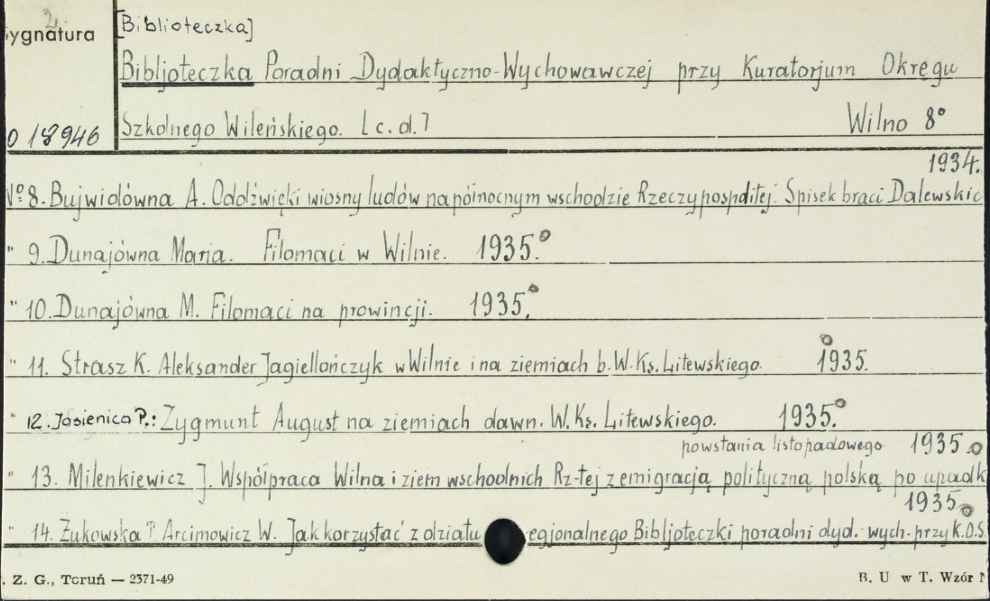 2.
[Biblioteczka]
ygnatura
Bibljoteczka Poradni Dydaktyczno-Wychowawczej przy Kuratorjum Okręgu
0 18946
Szkolnego Wileńskiego. [c.d.] Wilno 8°
1934.
№ 8. Bujwidówna A. Oddźwięki wiosny ludów na północnym wschodzie Rzeczypospolitej. Spisek braci Dalewskic
" 9. Dunajówna Maria. Filomaci w Wilnie. 1935.°
" 10. Dunajówna M. Filomaci na prowincji. 1935.°
" 11. Strasz K. Aleksander Jagiellończyk w Wilnie i na ziemiach b. W. Ks. Litewskiego. 1935.
" 12. Jasienica P.: Zygmunt August na ziemiach dawn. W. Ks. Litewskiego. 1935.°
powstania listopadowego 1935.
" 13. Milenkiewicz J. Współpraca Wilna i ziem wschodnich Rz-tej z emigracją polityczną polską po upadk
1935
" 14. Żukowska P. Arcimowicz W. Jak korzystać z działu egjonalnego Bibljoteczki poradni dyd.-wych. przy K.O.S.
. Z. G., Toruń — 2371-49 B. U w T. Wzór